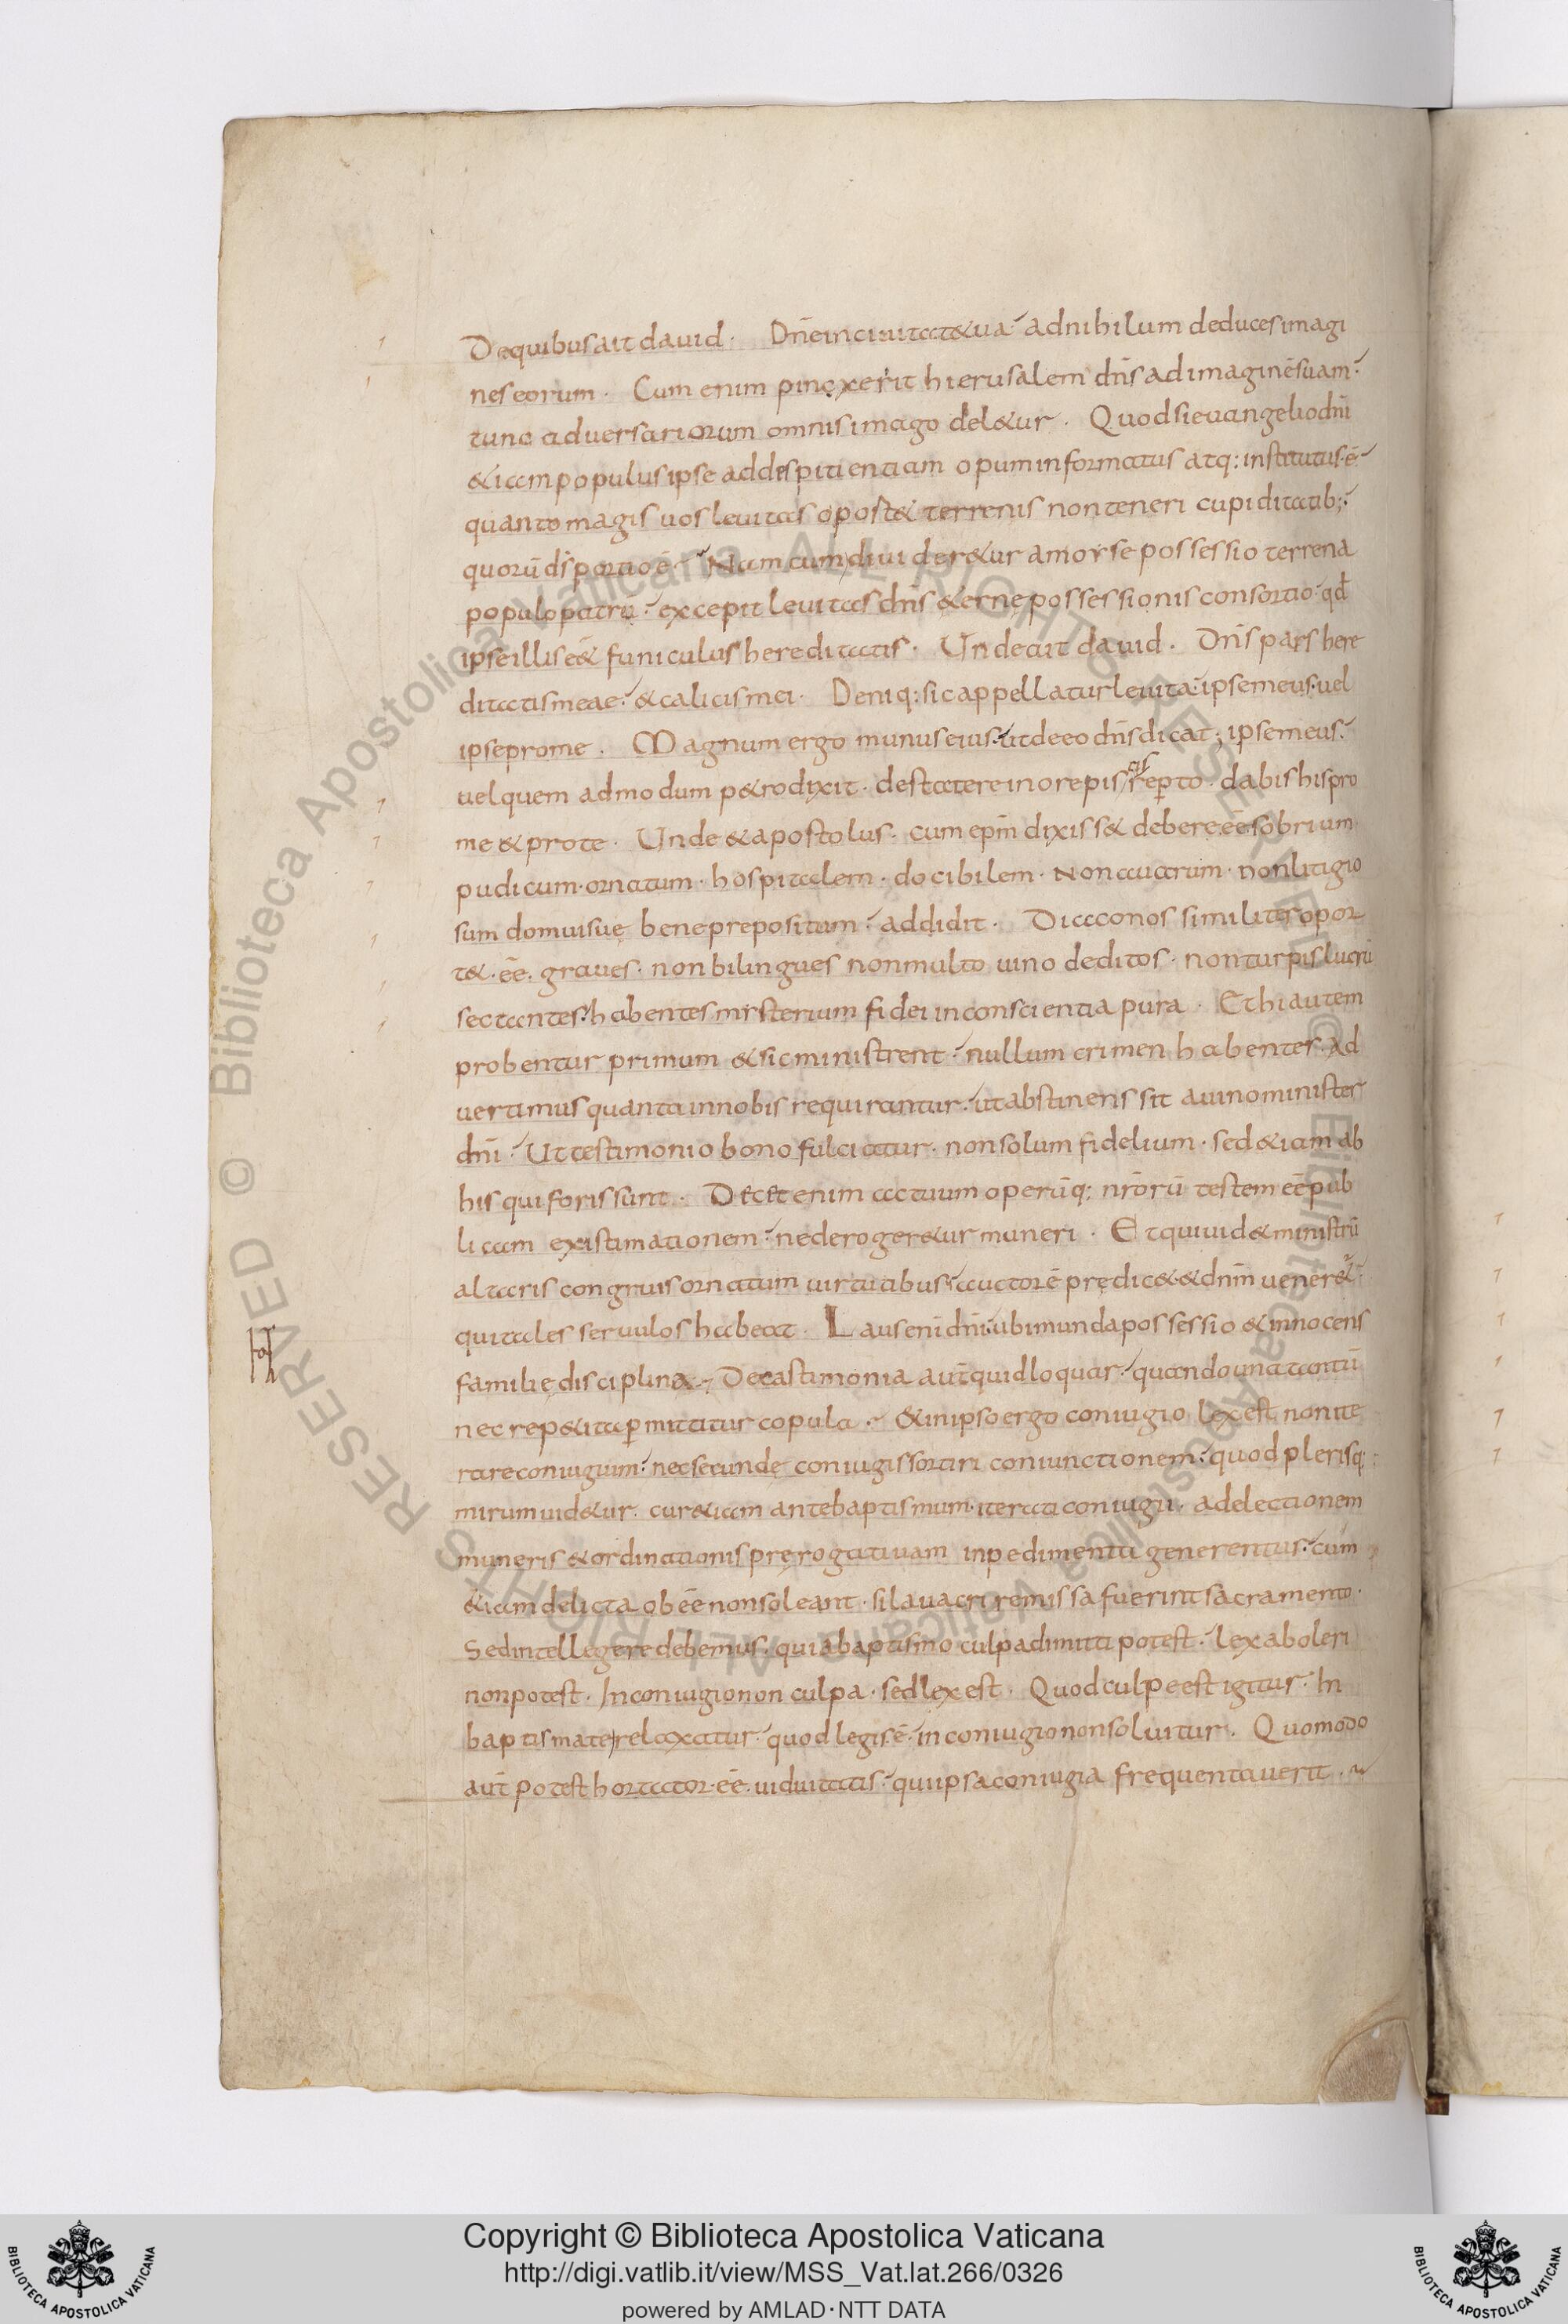 De quibus ait david · Dn̄e in civitate tua ad nihilum deduces imagi
nes eorum · Cum enim pinxerit hierusalem dn̄s ad imaginē suam ·
tunc adversariorum omnis imago del&ur · Quod si evangelio dn̄i
&iam populus ipse ad dispitientiam opum informatus atq: institutus · ē ·
quanto magis vos levitas oport& terrenis non teneri cupiditatib; ·
quorū ds̄ portio ē · Nam cum divider&ur a moyse possessio terrena
populo patrū · excepit levitas dn̄s &erne possessionis consortio · qd̄
ipse illis ē & funiculus hereditatis · Unde ait david · Dn̄s pars here
ditatis meae · & calicis mei · Deniq: sic appellatur levita · ipse meus · vel
ipse pro me · Magnum ergo munus eius · ut de eo dn̄s dicat ; ipse meus ·
vel quem ad modum p&ro dixit · de statere in ore piscis rep̄to · dabis his pro
me & pro te · Unde & apostolus · cum ep̄m dixiss& debere · ēe sobrium ·
pudicum · ornatum · hospitalem · docibilem · Non avarum · non litigio
sum domui suę bene prepositum · addidit · Diaconos similiter opor
t& · ēe · graves · non bilingues non multo vino deditos · non turpis lucrū
sectantes · habentes misterium fidei in conscientia pura · Et hi autem
probentur primum & sic ministrent · nullum crimen habentes · Ad
vertimus quanta in nobis requirantur · ut abstinens sit a vino minister
dn̄i · Ut testimonio bono fulciatur · non solum fidelium · sed &iam ab
his qui foris sunt · Decet enim actuum operūq: nr̄orū testem ēe pub
licam existimationem · ne deroger&ur muneri · Et qui vid& ministrū
altaris congruis ornatum virtutibus · auctorē prędic& · & dn̄m vener& ·
qui tales servulos habeat · Laus eni dn̄i · ubi munda possessio & innocens
familię disciplina · De castimonia aūt quid loquar · quando una tantū
nec rep&ita p̄mittitur copula · & in ipso ergo coniugio lex est non ite
rare coniugium · nec secundę coniugis sortiri coniunctionem · quod plerisq:
mirum vid&ur · cur &iam ante baptismum · iterati coniugii · ad electionem
muneris & ordinationis prerogativam inpedimenta generentur · cum
&iam delicta obēe non soleant · si lavacri remissa fuerint sacramento ·
Sed intellegere debemus · quia baptismo culpa dimitti potest · lex aboleri
non potest · In coniugio non culpa · sed lex est · Quod culpe est igitur · In
baptismate relaxatur · quod legis · ē · in coniugio non solvitur · Quomodo
aūt potest hortator · ēe · viduitatis · qui ipsa coniugia frequentaverit ·
Copyright © Biblioteca Apostolica Vaticana
http://digi.vatlib.it/view/MSS_Vat.lat.266/0326
powered by AMLAD·NTT DATA